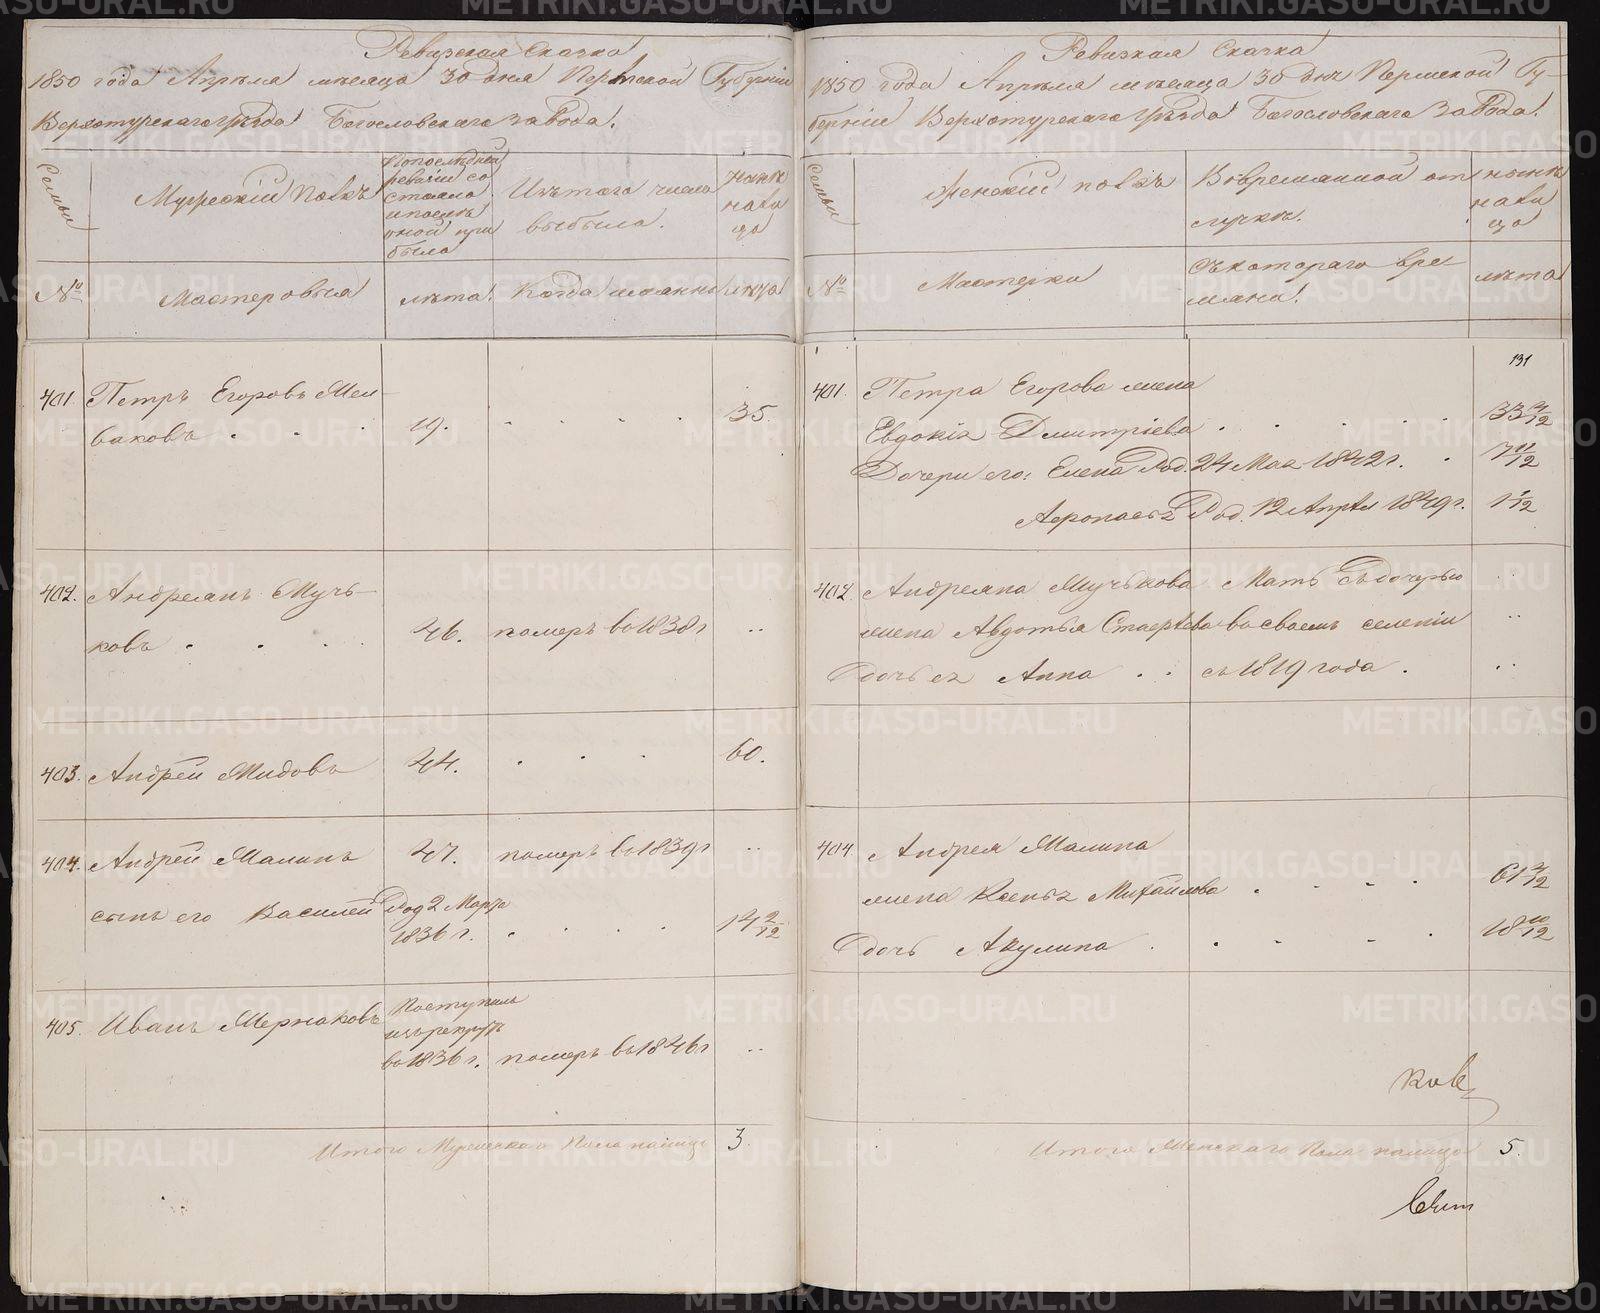 Ревизская Сказка
1850 года Апреля месяца 30 дня Пермской Губернiи
Верхотурскаго уѣзда Богословскаго завода.
Семьи
Мужескiй полъ
По последней ревизiи состояло и после оной прибыло
Изъ того числа выбыло.
Ныне на лицо
№
Мастеровыя
лѣта.
Когда именно
лѣта
401. Петръ Егоровъ Мел-
ваковъ . . . 19. . . . . 35.
402. Андреянъ Мучь-
ковъ . . . . 46. померъ въ 1838 г ..
403. Андрей Мидовъ 44. . . . 60.
404. Андрей Малинъ 47. померъ въ 1839 г ..
сынъ его Василей Род 2 Марта
1836 г. . . . . 14 2/12
405. Иванъ Мернаковъ Поступилъ
изъ рекрутъ
въ 1836 г. померъ въ 1846 г ..
Итого Мужескаго Пола налицо 3
Ревизкая Сказка
1850 года Апреля месяца 30 дня Пермской Гу-
бернiи Верхотурскаго уѣзда Богословскаго завода.
Семьи
Женскiй полъ
Во временной отлучке.
ныне на лицо
№
Мастерки
Съ котораго времяни.
лѣта
131
401. Петра Егорова жена
Евдокiя Дмитрiева . . . . . 33 9/12
Дочери его: Елена Род. 24 Мая 1842 г. . 7 11/12
Род. 12 Апреля 1849 г. 1 1/12
402. Андреяна Мучькова Мать съ дочерью ..
жена Авдотья во своемъ селенiи ..
дочь ея Анна . . съ 1819 года . ..
404. Андрея Малина
жена Ксенья Михайлова . . . . 61 2/12
дочь Акулина . . . . . 18 10/12
Итого Женскаго Пола налицо 5.
METRIKI.GASO-URAL.RU